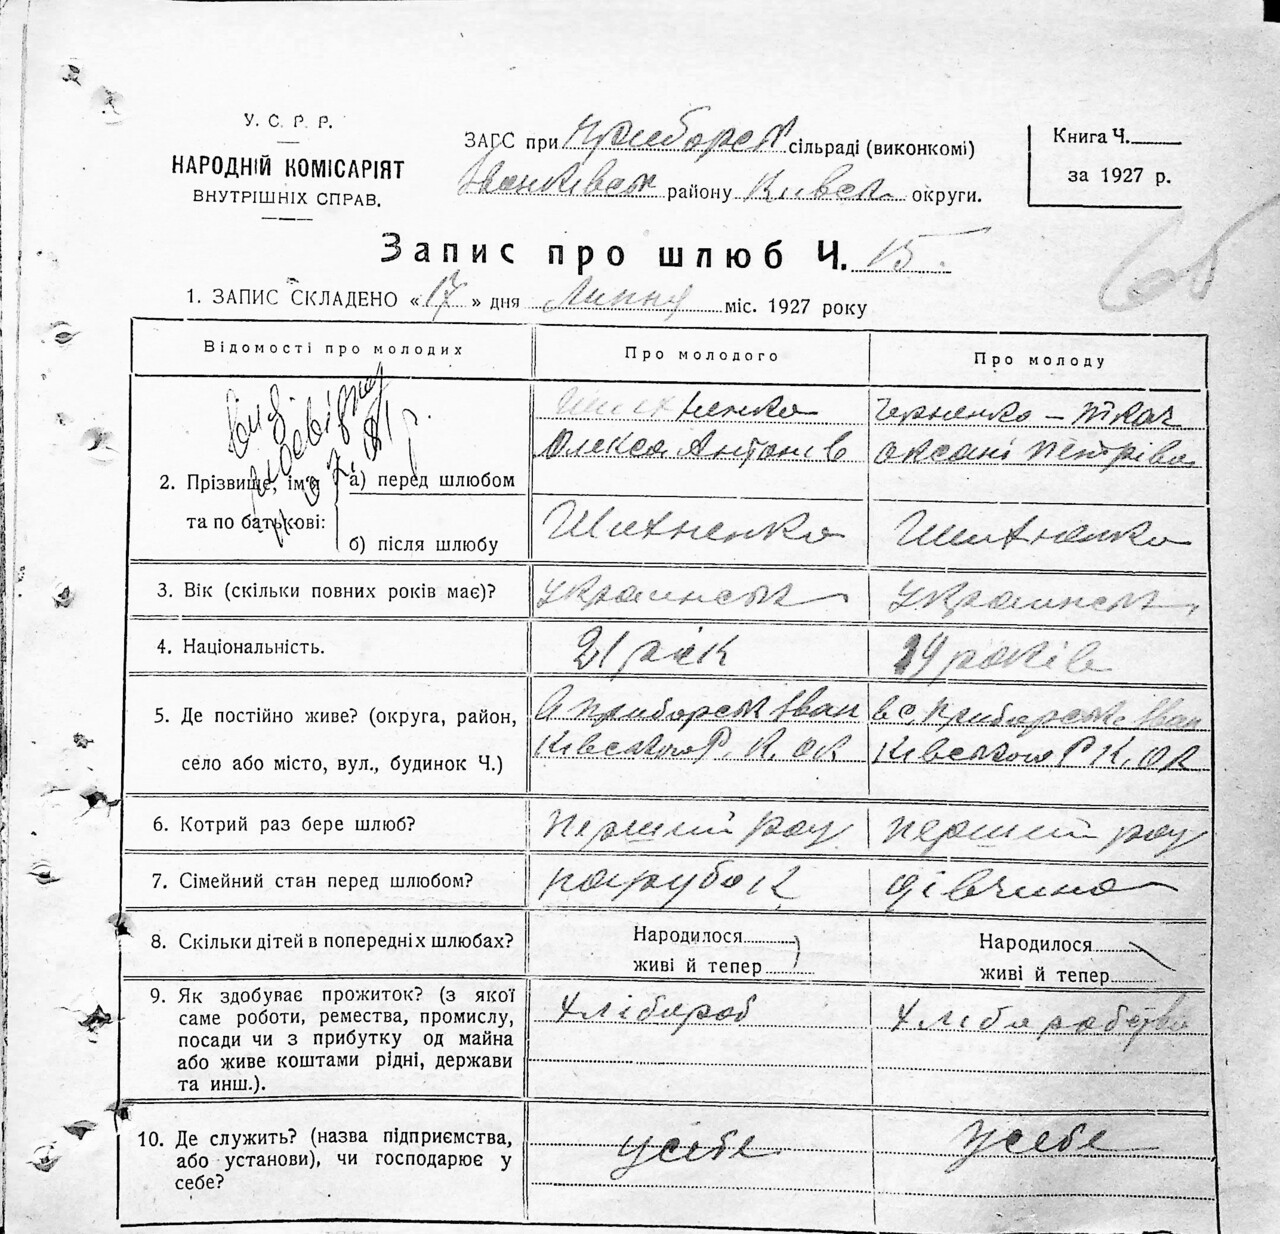 У. С. Р. Р.
НАРОДНІЙ КОМІСАРІЯТ
ВНУТРІШНІХ СПРАВ.
ЗАГС при Приборськ сільраді (виконкомі)
Іванківськ району Київськ округи.
Книга Ч.
за 1927 р.
Запис про шлюб Ч. 15.
1. ЗАПИС СКЛАДЕНО «17» дня Липня міс. 1927 року
Відомості про молодих
Про молодого
Про молоду
2. Прізвище, ім'я та по батькові:
а) перед шлюбом
Шихненко
Олекса Антонів
Черненко – Ткач
Оксані Петрівна
б) після шлюбу
Шихненко
Шихненко
3. Вік (скільки повних років має)?
Украинськ
Украинськ
4. Національність.
21 рік
19 років
5. Де постійно живе? (округа, район,
село або місто, вул., будинок Ч.)
Приборськ Іван
ківського Р. К. Ок
в с. Приборськ Іван
ківського Р К. Ок
6. Котрий раз бере шлюб?
перший раз
перший раз
7. Сімейний стан перед шлюбом?
парубок
дівчина
8. Скільки дітей в попередніх шлюбах?
Народилося
живі й тепер
Народилося
живі й тепер
9. Як здобуває прожиток? (з якої
саме роботи, ремества, промислу,
посади чи з прибутку од майна
або живе коштами рідні, держави
та инш.).
Хлібороб
Хліборобство
10. Де служить? (назва підприємства,
або установи), чи господарює у
себе?
усебе
усебе